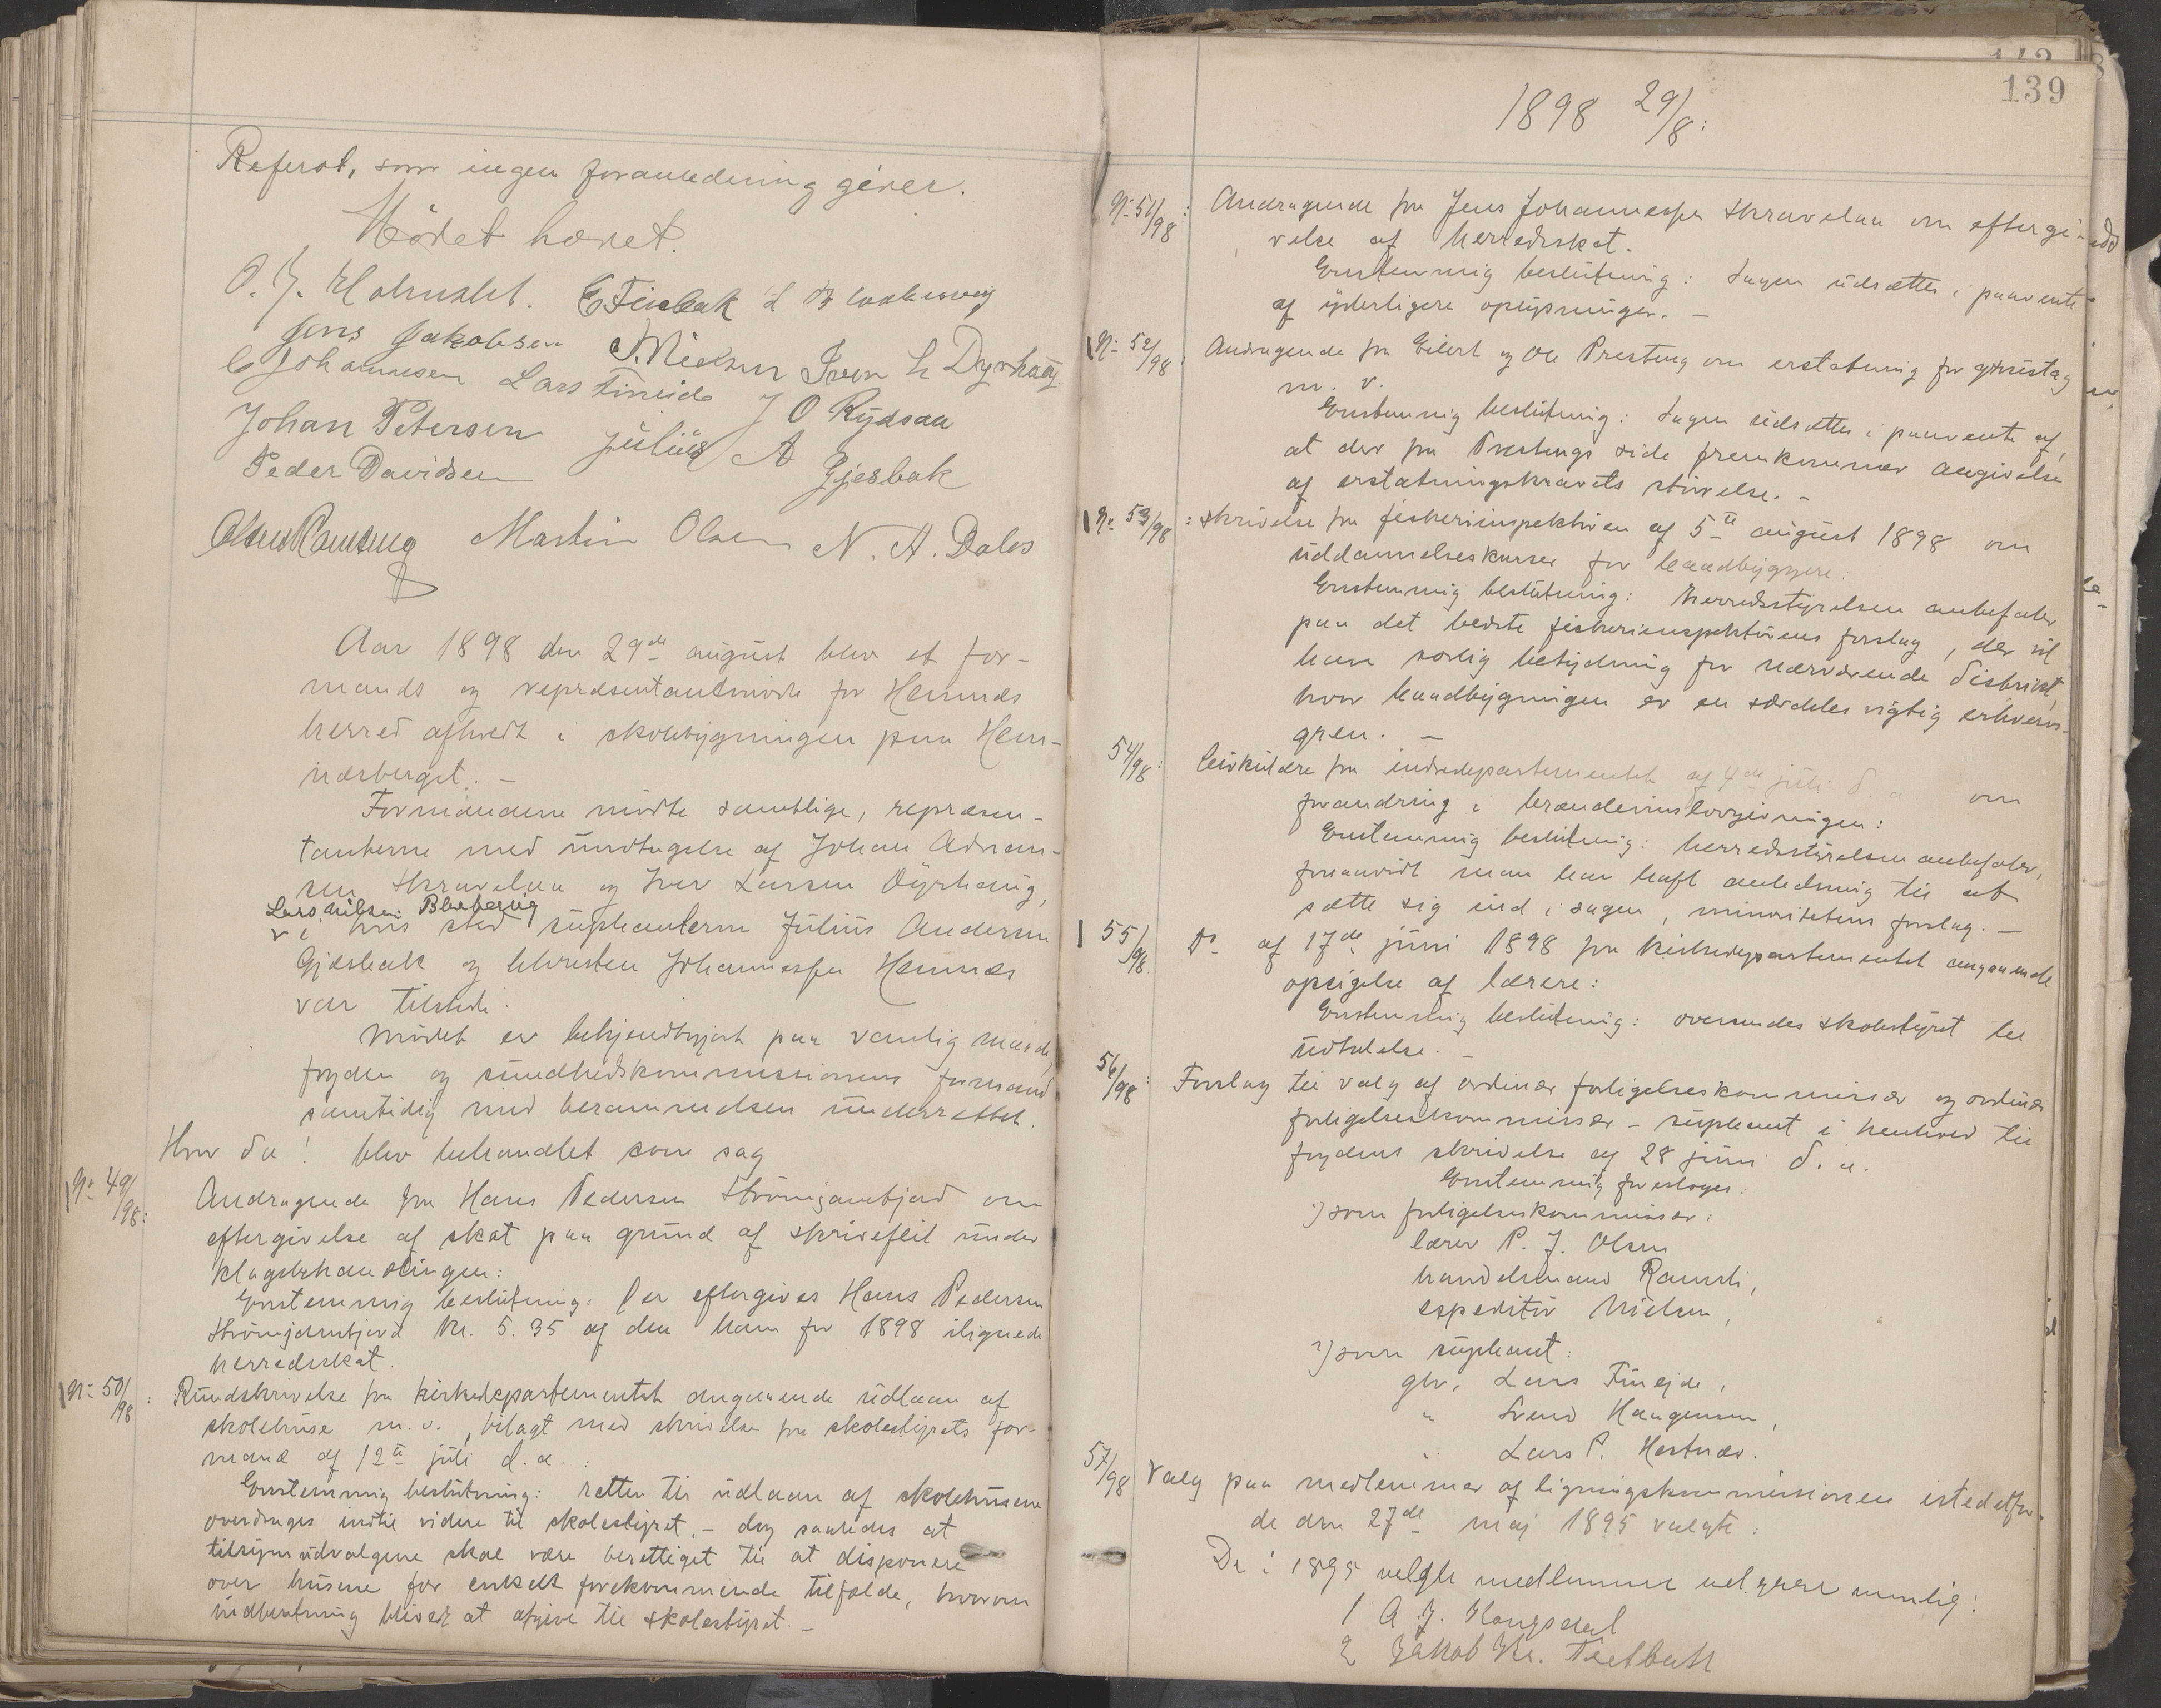 Referat, som ingen foranledning giver.
Mødet hævet.
O. J. Holmslet. E Finbak L N
Jens Jakobsen J. Nielsen Iver L Dyrhaug
C Johannesen Lars Fineide J O Rydsaa
Johan Petersen Julius A Gjesbak
Peder Davidsen
Martin Olsen N. A. Dalos
Aar 1898 den 29de august blev et for-
mands og repræsentantmøde for Hemnæs
herred afholdt i skolebygningen paa Hem-
næsberget. –
Formændene mødte samtlige, repræsen-
tanterne med undtagelse af Johan Adrian-
sen Skravelaa og Iver Larsen Dyrhaug,
Lars Nilsen Blebervig
i hvis sted suplanterne Julius Andersen
Gjæsbak og Christen Johannesen Hemnæs
var tilstede.
Mødet er bekjendtgjort paa vanlig maade,
fogden og sundhedskommissionens formand
samtidig med berammelsen underrettet.
Hvor da! blev behandlet som sag
No 49/98: Andragende fra Hans Pedersen Strømjambfjord om
eftergivelse af skat paa grund af skrivefeil under
klagebehandlingen:
Enstemmig beslutning: Der eftergives Hans Pedersen
Strømjambfjord kr. 5.35 af den ham for 1898 ilignede
herredsskat.
No 50/98: Rundskrivelse fra kirkedepartementet angaaende udlaan af
skolehuse m. v., bilagt med skrivelse fra skolestyrets for-
mand af 12te juli d. a.:
Enstemmig beslutning: retten til udlaan af skolehusene
overdrages indtil videre til skolestyret, – dog saaledes at
tilsynsudvalgene skal være berettiget til at disponere
over husene for enkelt forekommende tilfælde, hvorom
indberetning bliver at afgive til skolestyret. –
139
1898 29/8:
No 51/98: Andragende fra Jens Johannessen Skravelaa om eftergi-
velse af herredsskat.
Enstemmig beslutning: Sagen udsættes i paavente
af yderligere oplysninger. –
No 52/98: Andragende fra Eilert og Ole Presteng om erstatning for grustag
m. v.
Enstemmig beslutning: Sagen udsættes i paavente af,
at der fra Prestengs side fremkommer angivelse
af erstatningskravets størrelse. –
No 53/98: Skrivelse fra fiskeriinspektøren af 5te august 1898 om
uddannelseskurser for baadbyggere:
Enstemmig beslutning: Herredsstyrelsen anbefaler
paa det bedste fiskeriinspektørens forslag, der vil
have særlig betydning for nærværende distrikt,
hvor baadbygningen er en særdeles vigtig erhvervs-
gren. –
54/98: Cirkulære fra indredepartementet af 4de juli d. a. om
forandring i brændevinslovgivningen:
Enstemmig beslutning: herredsstyrelsen anbefaler,
forsaavidt man har havt anledning til at
sætte sig ind i sagen, minoritetens forslag. –
55/98. Do af 17de juni 1898 fra kirkedepartementet angaaende
opsigelse af lærere:
Enstemmig beslutning: oversendes skolestyret til
udtalelse. –
56/98: Forslag til valg af ordinær forligelseskommissær og ordinær
forligelseskommissær-suplеant i henhold til
fogdens skrivelse af 28 juni d. a.
Enstemmig foreslages:
1) som forligelseskommissær:
lærer P. J. Olsen
handelsmand Ramsli,
expeditør Nielsen,
2) som supleant:
gbr. Lars Finejde,
" Svend Haugensen,
" Lars P. Hestnæs.
57/98 Valg paa medlemmer af ligningskommissionen istedetfor
de den 27de maj 1895 valgte:
De i 1895 valgte medlemmer nemlig:
1 A. J. Haugsdal
2 Jakob Kr.